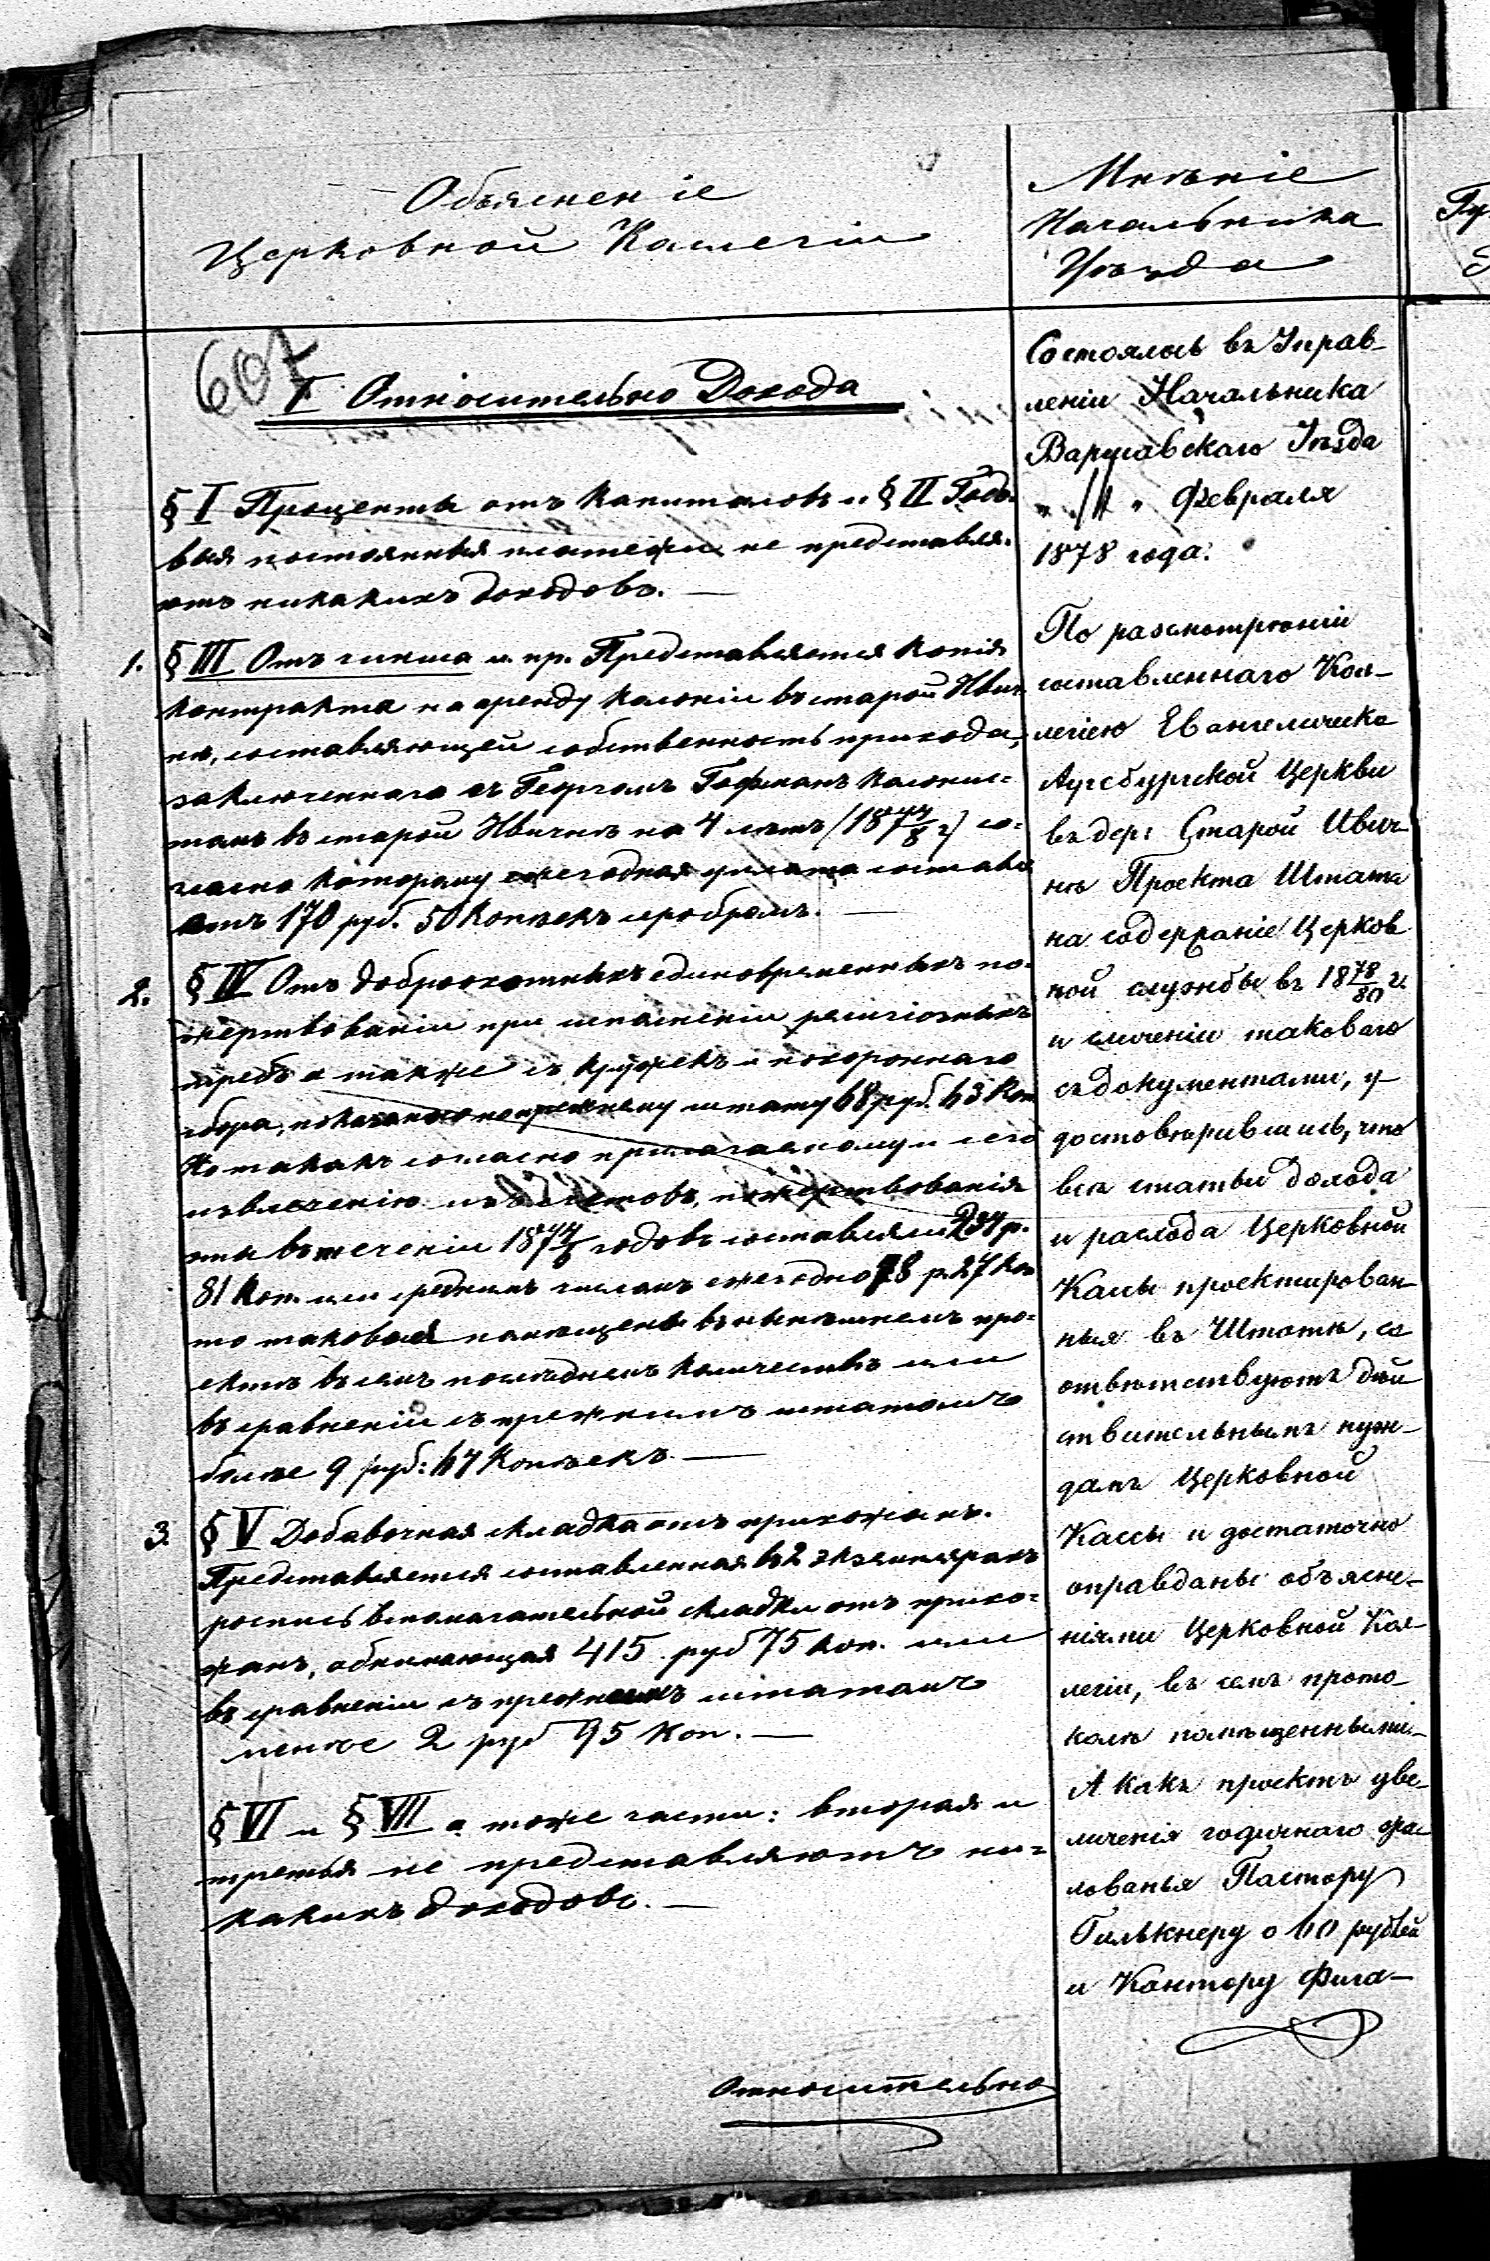 Объясненіе
Церковной Колегіи
607
I Относительно Дохода
§ I Проценты отъ капиталовъ и § II Годо-
выя постоянныя платежи не представля-
ютъ никакихъ доходовъ. —
1. § III Отъ чинша и пр. Представляется копія
контракта на аренду колоніи въ старой Ивич-
нѣ, составляющей собственность прихода,
заключеннаго съ Георгомъ Гофманъ колонис-
томъ въ старой Ивичнѣ на 4 лѣтъ (18 г.) со-
гласно которому ежегодная уплата составля
етъ 170 руб. 50 копѣекъ серебромъ. —
2. § IV Отъ доброхотныхъ единовременныхъ по-
жертвованіи при исполненіи религіозныхъ
требъ а также съ кружекъ и похороннаго
сбора, показано по прежнему штату 68 руб. 63 коп
Но такъ какъ согласно прилагаемому и его
извлеченію изъ счетовъ, пожертвованія
эти въ теченіи 18 годовъ составляли 234 р.
81 коп. или среднимъ числомъ ежегодно 78 р. 27 коп
то таковыя помѣщены въ нынѣшнемъ про-
ектѣ въ семъ послѣднемъ количествѣ или
въ сравненіи съ прежнимъ штатомъ
болѣе 9 руб: 64 копѣекъ. —
3. § V Добавочная складка отъ прихожанъ.
Представляется составленная въ 2 экземплярахъ
роспись вспомагательной складки отъ прихо-
жанъ, обнимающая 415 руб 75 коп. или
въ сравненіи съ прежнимъ штатомъ
менѣе 2 руб 95 коп. —
§ VI и § VII а тоже части: вторая и
третья не представляютъ ни-
какихъ доходовъ. —
Относительно
Мнѣніе
Начальника
Уѣзда
Состоялось въ Управ-
леніи Начальника
Варшавскаго Уѣзда
" " Февраля
1878 года.
По разсмотрѣніи
составленнаго Кол-
легіею Евангелическо
Аугсбургской Церкви
въ дер: Старой Ивич
нѣ Проекта Штата
на содержаніе Церков
ной службы въ 18 78/80 г.
и сличеніи таковаго
съ документами, у-
достовѣрившись, что
всѣ статьи дохода
и расхода Церковной
Кассы проектирован-
ныя въ Штатѣ, со
отвѣтствуютъ дѣй
ствительнымъ нуж-
дамъ Церковной
Кассы и достаточно
оправданы объясне-
ніями Церковной Кол-
легіи, въ семъ прото-
колѣ помѣщенными.
А какъ проектъ уве-
личенія годичнаго жа
лованья Пастору
Гилькнеру о 60 рублей
и Кантору Фила-